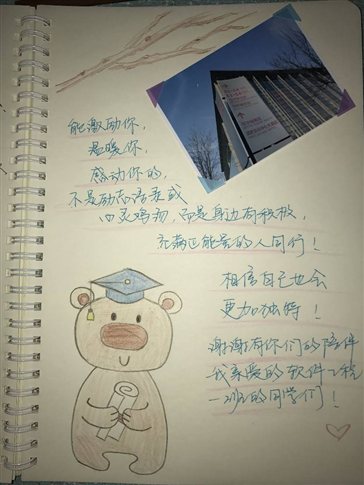 能激励你，
温暖你，
感动你的，
不是励志语录或
心灵鸡汤，而是身边有积极，
充满正能量的人同行！
相信自己也会
更加独特！
谢谢有你们的陪伴
我亲爱的软件工程
一班的同学们！